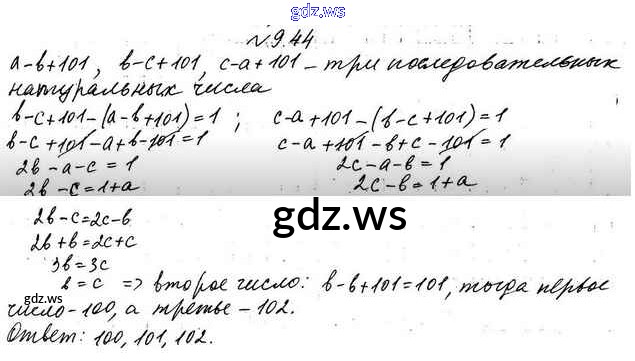 gdz.ws
№9.44
a-b+101, b-c+101, c-a+101 - три последовательных
натуральных числа
b-c+101-(a-b+101)=1; c-a+101-(b-c+101)=1
b-c+101-a+b-101=1 c-a+101-b+c-101=1
2b-a-c=1 2c-a-b=1
2b-c=1+a 2c-b=1+a
2b-c=2c-b
gdz.ws
2b+b=2c+c
3b=3c
b=c => второе число: b-b+101=101, тогда первое
gdz.ws
число-100, а третье-102.
Ответ: 100, 101, 102.